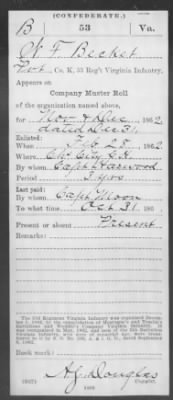 (CONFEDERATE.)
B 53 Va.
W. F. Becket
Pvt, Co. K, 53 Reg't Virginia Infantry.
Appears on
Company Muster Roll
of the organization named above,
for Nov & Dec, 1862
dated Dec 31
Enlisted:
When Feb 28, 1862
Where Ch. City C.H.
By whom Capt Harwood
Period 3 yrs
Last paid:
By whom Capt Moon
To what time Oct 31, 186
Present or absent Present
Remarks:
Book mark:
(642) A. J. Douglas
Copyist.